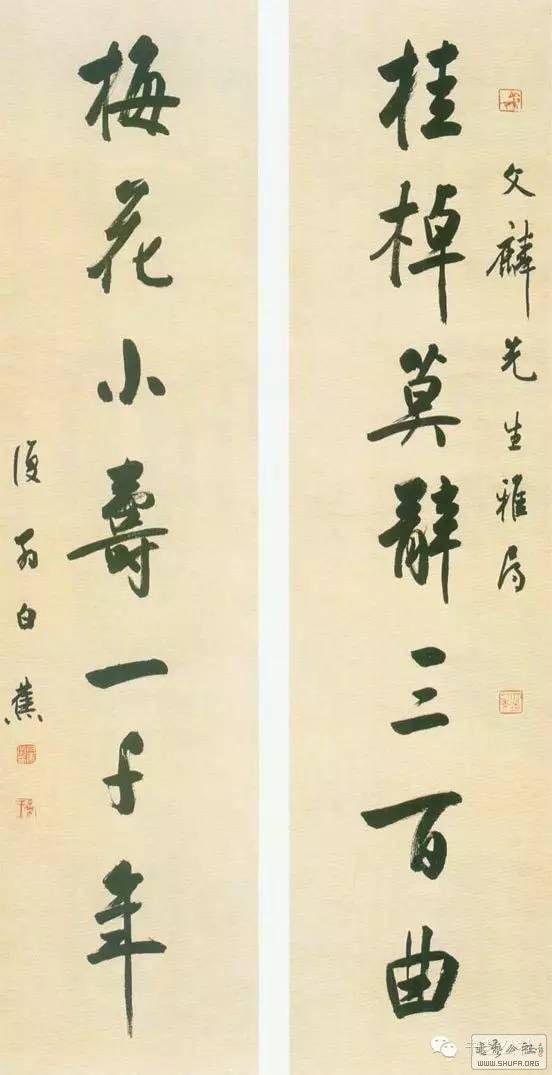 文麟先生雅属
桂棹莫辭三百曲
梅花小壽一千年
復翁白蕉
书艺公社
WWW.SHUFA.ORG